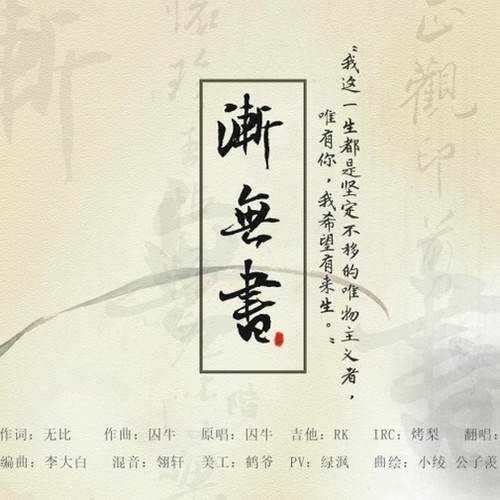 漸無書
“我这一生都是坚定不移的唯物主义者，
唯有你，我希望有来生。”
作词：无比 作曲：囚牛 原唱：囚牛 吉他：RK IRC：烤梨 翻唱：
编曲：李大白 混音：翎轩 美工：鹤爷 PV：绿沨 曲绘：小绫 公子羡